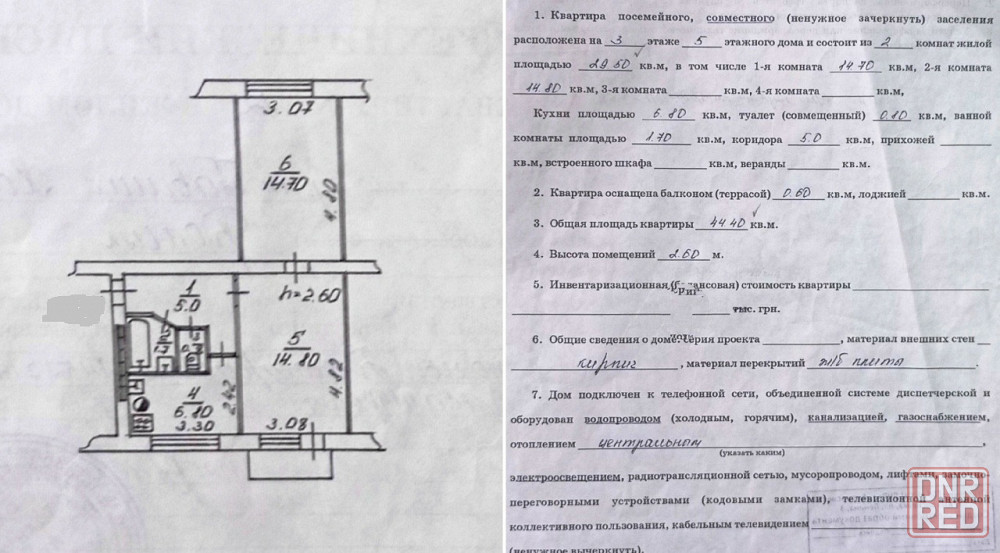 3.07
6
14.70
4.80
h=2.60
1
5.0
5
14.80
4.82
4
6.80
2.42
3.30
3.08
1. Квартира посемейного, совместного (ненужное зачеркнуть) заселения
расположена на 3 этаже 5 этажного дома и состоит из 2 комнат жилой
площадью 29.50 кв.м, в том числе 1-я комната 14.70 кв.м, 2-я комната
14.80 кв.м, 3-я комната кв.м, 4-я комната кв.м,
Кухни площадью 6.80 кв.м, туалет (совмещенный) 0.80 кв.м, ванной
комнаты площадью 1.70 кв.м, коридора 5.0 кв.м, прихожей
кв.м, встроенного шкафа кв.м, веранды кв.м.
2. Квартира оснащена балконом (террасой) 0.60 кв.м, лоджией кв.м.
3. Общая площадь квартиры 44.40 кв.м.
4. Высота помещений 2.60 м.
5. Инвентаризационная стоимость квартиры
тыс. грн.
6. Общие сведения о доме: серия проекта , материал внешних стен
кирпич , материал перекрытий ж/б плита .
7. Дом подключен к телефонной сети, объединенной системе диспетчерской и
оборудован водопроводом (холодным, горячим), канализацией, газоснабжением,
отоплением центральном ,
(указать каким)
электроосвещением, радиотрансляционной сетью, мусоропроводом, лифтами, замочно-
переговорными устройствами (кодовыми замками), телевизионной антенной
коллективного пользования, кабельным телевидением
(ненужное вычеркнуть).
DNR
RED